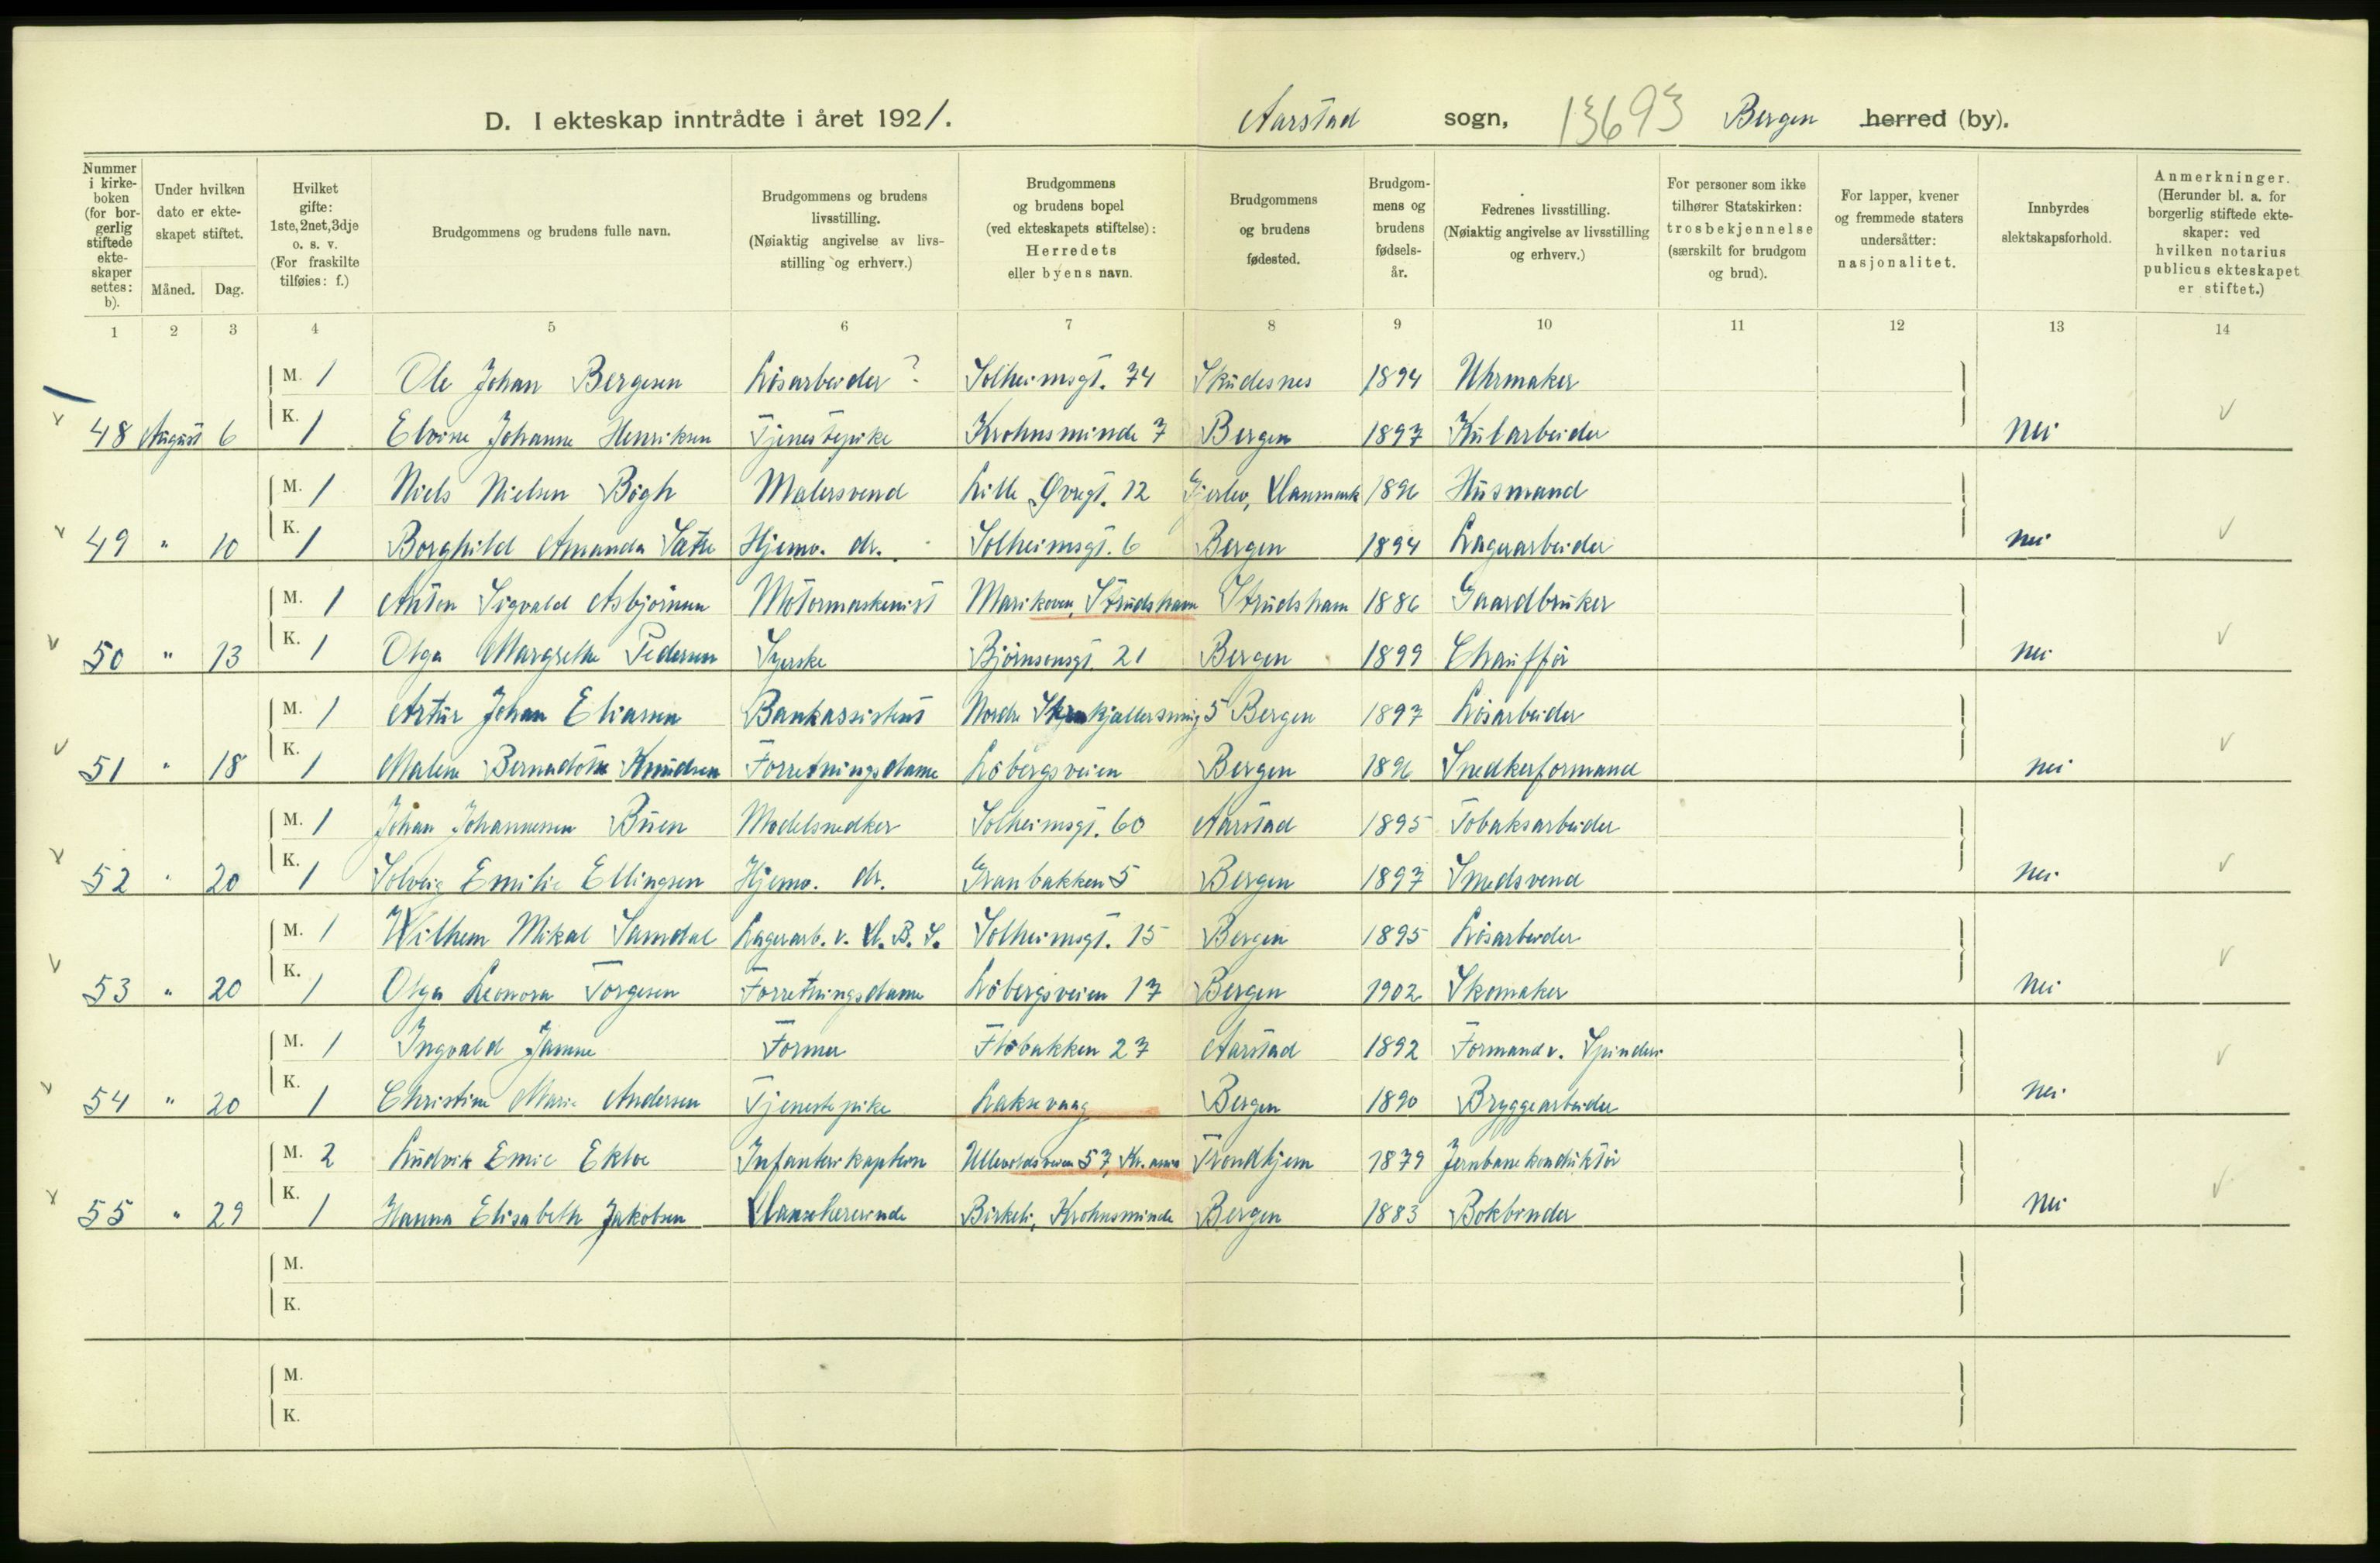 D. I ekteskap inntrådte i året 1921. Aarstad sogn, 13693 Bergen herred (by).
Nummer i kirke-boken (for bor-gerlig stiftede ekte-skaper settes: b).
Under hvilken dato er ekte-skapet stiftet.
Måned. Dag.
Hvilket gifte: 1ste, 2net, 3dje o. s. v. (For fraskilte tilføies: f.)
Brudgommens og brudens fulle navn.
Brudgommens og brudens livsstilling. (Nøiaktig angivelse av livs-stilling og erhverv.)
Brudgommens og brudens bopel (ved ekteskapets stiftelse): Herredets eller byens navn.
Brudgommens og brudens fødested.
Brudgom-mens og brudens fødsels-år.
Fedrenes livsstilling. (Nøiaktig angivelse av livsstilling og erhverv.)
For personer som ikke tilhører Statskirken: trosbekjennelse (særskilt for brudgom og brud).
For lapper, kvener og fremmede staters undersåtter: nasjonalitet.
Innbyrdes slektskapsforhold.
Anmerkninger. (Herunder bl. a. for borgerlig stiftede ekte-skaper: ved hvilken notarius publicus ekteskapet er stiftet.)
1 2 3 4 5 6 7 8 9 10 11 12 13 14
M. 1 Ole Johan Bergesen Løsarbeider ? Solheimsgt. 74 Skudesnes 1894 Uhrmaker
48 August 6 K. 1 Elvine Johanne Henriksen Tjenestepike Krohnsminde 7 Bergen 1897 Kularbeider Nei
M. 1 Niels Nielsen Bøgh Malersvend Lille Øvregt. 12 Gjerlev, Danmark 1896 Husmand
49 " 10 K. 1 Borghild Amanda Sætre Hjemv. dr. Solheimsgt. 6 Bergen 1894 Lagerarbeider Nei
M. 1 Anton Sigvald Asbjørnsen Motormaskinist Marikoven, Strudshavn Strudshavn 1886 Gaardbruker
50 " 13 K. 1 Olga Margrethe Pedersen Syerske Bjørnsonsgt. 21 Bergen 1899 Chauffør Nei
M. 1 Artur Johan Eliassen Bankassistent Nordre 5 Bergen 1897 Løsarbeider
51 " 18 K. 1 Malene Knudsen Forretningsdame Løbergsveien Bergen 1896 Snedkerformand Nei
M. 1 Johan Johannessen Buen Modelsnedker Solheimsgt. 60 Aarstad 1895 Tobaksarbeider
52 " 20 K. 1 Solveig Emilie Ellingsen Hjemv. dr. Granbakken 5 Bergen 1897 Smedsvend Nei
M. 1 Wilhem Mikal Samdal Lagerarb. v. D. B. S. Solheimsgt. 15 Bergen 1895 Løsarbeider
53 " 20 K. 1 Olga Leonora Torgesen Forretningsdame Løbergsveien 17 Bergen 1902 Skomaker Nei
M. 1 Ingvald Jamne Former Fløbakken 27 Aarstad 1892 Formand v. Spinderi
54 " 20 K. 1 Christine Marie Andersen Tjenestepike Laksevaag Bergen 1890 Bryggearbeider Nei
M. 2 Ludvik Emil Infanterikaptein Ullevoldsveien 57, Kr.ania Trondhjem 1879 Jernbanekonduktør
55 " 29 K. 1 Hanna Elisabeth Jakobsen Danselærerinde Birkeli, Krohnsminde Bergen 1883 Bokbinder Nei
M.
K.
M.
K.